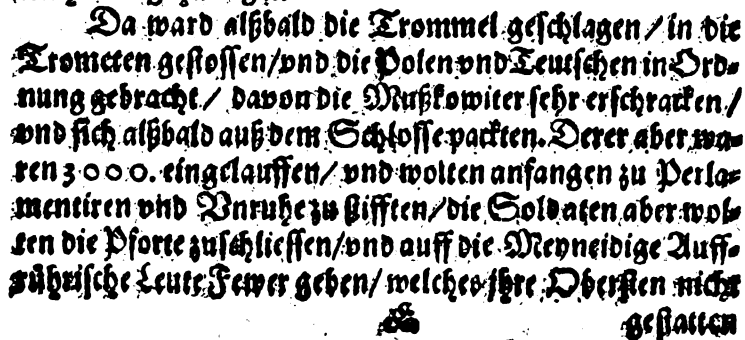 Da ward alßbald die Trommel geschlagen / in die
Trometen gestossen / vnd die Polen vnd Teutschen in Ord-
nung gebracht / davon die Mußkowiter sehr erschracken /
vnd sich alßbald auß dem Schlosse packten. Derer aber wa-
ren 3000. eingelauffen / vnd wolten anfangen zu Perla-
mentiren vnd Vnruhe zu stifften / die Soldaten aber wol-
ten die Pforte zuschliessen / vnd auff die Meyneidige Auff-
rührische Leute Fewer geben / welches ihre Obersten nicht
gestatten